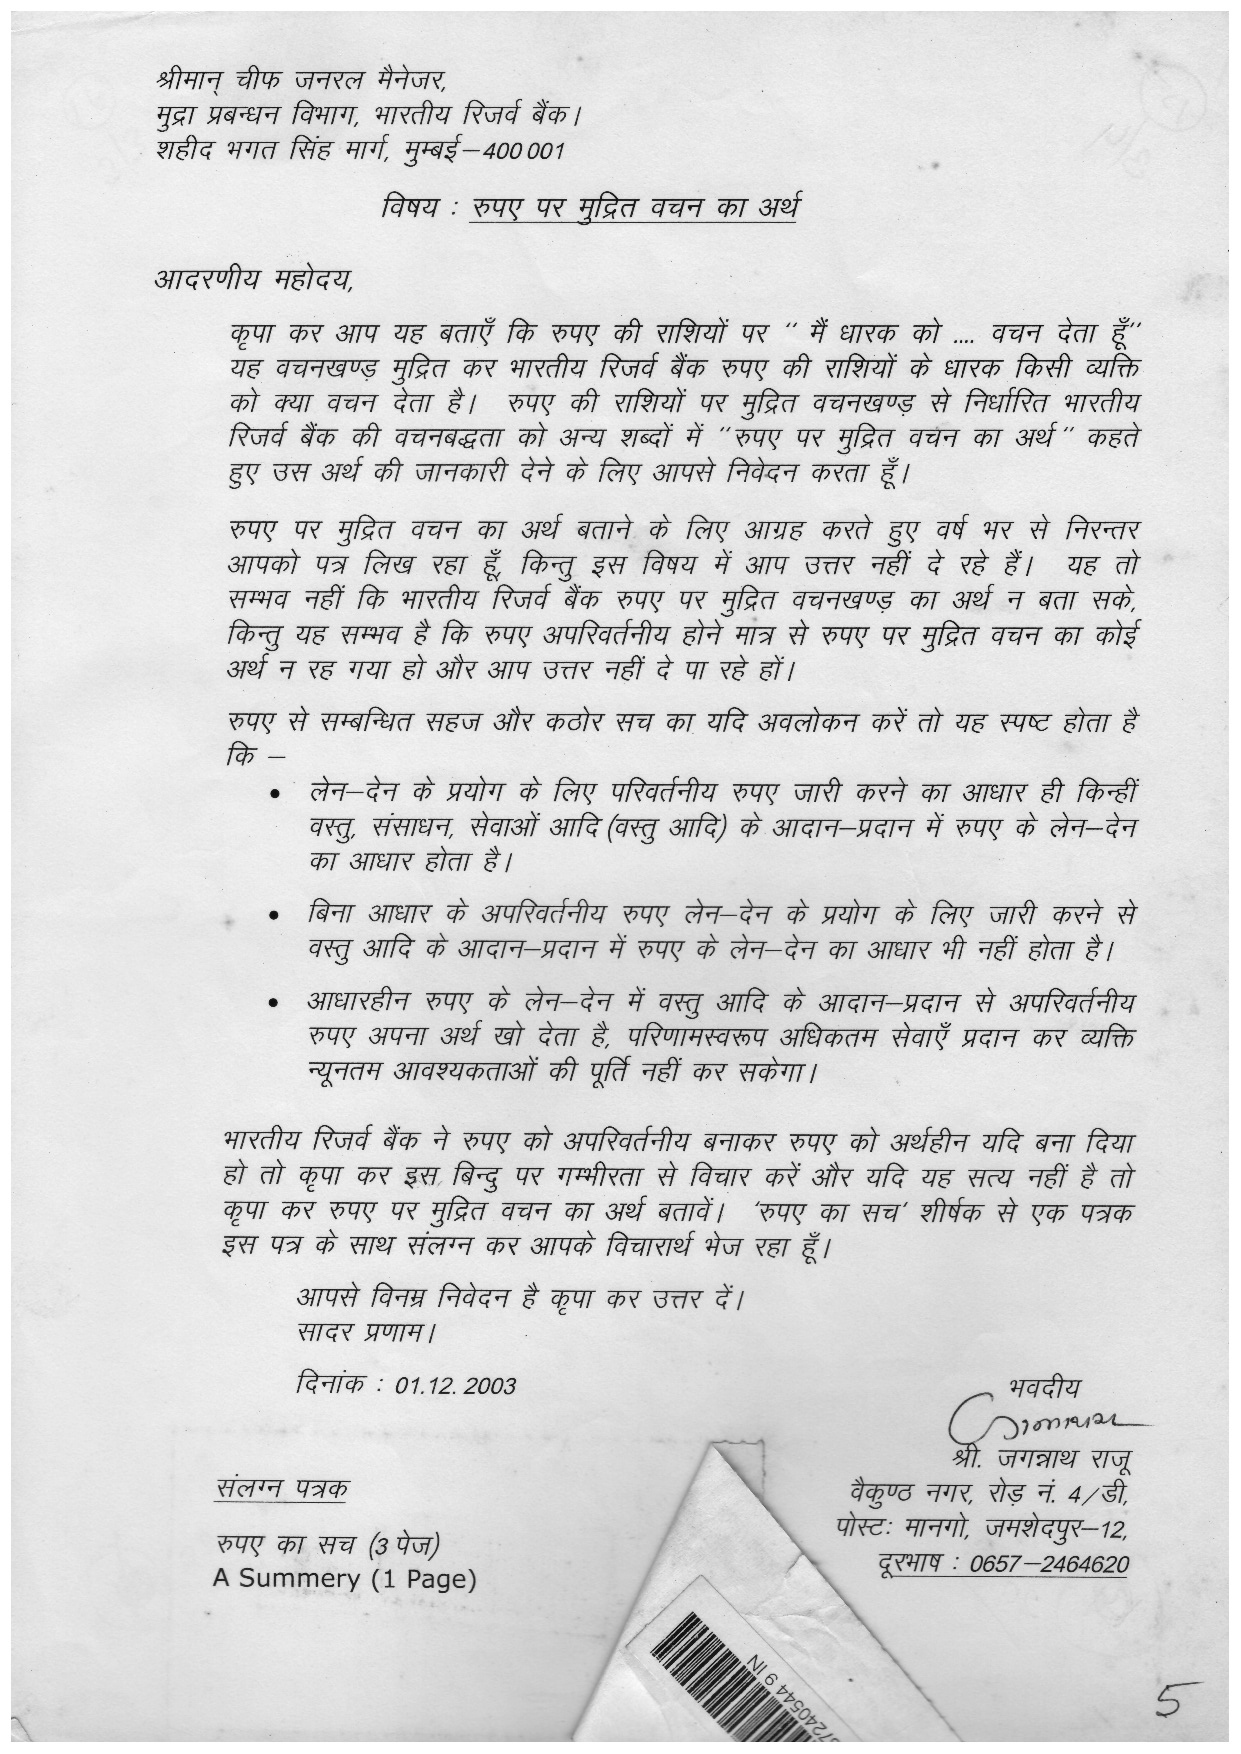 श्रीमान् चीफ जनरल मैनेजर,
मुद्रा प्रबन्धन विभाग, भारतीय रिजर्व बैंक।
शहीद भगत सिंह मार्ग, मुम्बई–400 001
विषय : रुपए पर मुद्रित वचन का अर्थ
आदरणीय महोदय,
कृपा कर आप यह बताएँ कि रुपए की राशियों पर " मैं धारक को .... वचन देता हूँ"
यह वचनखण्ड़ मुद्रित कर भारतीय रिजर्व बैंक रुपए की राशियों के धारक किसी व्यक्ति
को क्या वचन देता है। रुपए की राशियों पर मुद्रित वचनखण्ड़ से निर्धारित भारतीय
रिजर्व बैंक की वचनबद्धता को अन्य शब्दों में "रुपए पर मुद्रित वचन का अर्थ" कहते
हुए उस अर्थ की जानकारी देने के लिए आपसे निवेदन करता हूँ।
रुपए पर मुद्रित वचन का अर्थ बताने के लिए आग्रह करते हुए वर्ष भर से निरन्तर
आपको पत्र लिख रहा हूँ, किन्तु इस विषय में आप उत्तर नहीं दे रहे हैं। यह तो
सम्भव नहीं कि भारतीय रिजर्व बैंक रुपए पर मुद्रित वचनखण्ड़ का अर्थ न बता सके,
किन्तु यह सम्भव है कि रुपए अपरिवर्तनीय होने मात्र से रुपए पर मुद्रित वचन का कोई
अर्थ न रह गया हो और आप उत्तर नहीं दे पा रहे हों।
रुपए से सम्बन्धित सहज और कठोर सच का यदि अवलोकन करें तो यह स्पष्ट होता है
कि –
• लेन–देन के प्रयोग के लिए परिवर्तनीय रुपए जारी करने का आधार ही किन्हीं
वस्तु, संसाधन, सेवाओं आदि (वस्तु आदि) के आदान–प्रदान में रुपए के लेन–देन
का आधार होता है।
• बिना आधार के अपरिवर्तनीय रुपए लेन–देन के प्रयोग के लिए जारी करने से
वस्तु आदि के आदान–प्रदान में रुपए के लेन–देन का आधार भी नहीं होता है।
• आधारहीन रुपए के लेन–देन में वस्तु आदि के आदान–प्रदान से अपरिवर्तनीय
रुपए अपना अर्थ खो देता है, परिणामस्वरूप अधिकतम सेवाएँ प्रदान कर व्यक्ति
न्यूनतम आवश्यकताओं की पूर्ति नहीं कर सकेगा।
भारतीय रिजर्व बैंक ने रुपए को अपरिवर्तनीय बनाकर रुपए को अर्थहीन यदि बना दिया
हो तो कृपा कर इस बिन्दु पर गम्भीरता से विचार करें और यदि यह सत्य नहीं है तो
कृपा कर रुपए पर मुद्रित वचन का अर्थ बतावें। 'रुपए का सच' शीर्षक से एक पत्रक
इस पत्र के साथ संलग्न कर आपके विचारार्थ भेज रहा हूँ।
आपसे विनम्र निवेदन है कृपा कर उत्तर दें।
सादर प्रणाम।
दिनांक : 01.12. 2003
भवदीय
श्री. जगन्नाथ राजू
वैकुण्ठ नगर, रोड़ नं. 4/डी,
पोस्ट: मानगो, जमशेदपुर–12,
दूरभाष : 0657–2464620
संलग्न पत्रक
रुपए का सच (3 पेज)
A Summery (1 Page)
7240544 9 IN
5